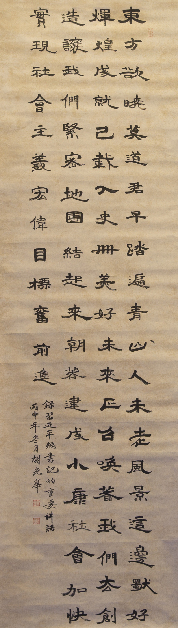 東方欲曉莫道君早踏遍青山人未老風景這邊獨好
輝煌成就已載入史冊美好未來正召喚着我們去創
造讓我們緊密地團結起來朝着建成小康社會加快
實現社會主義宏偉目標奮前進
錄習近平總書記的重要講話
丙申年冬月